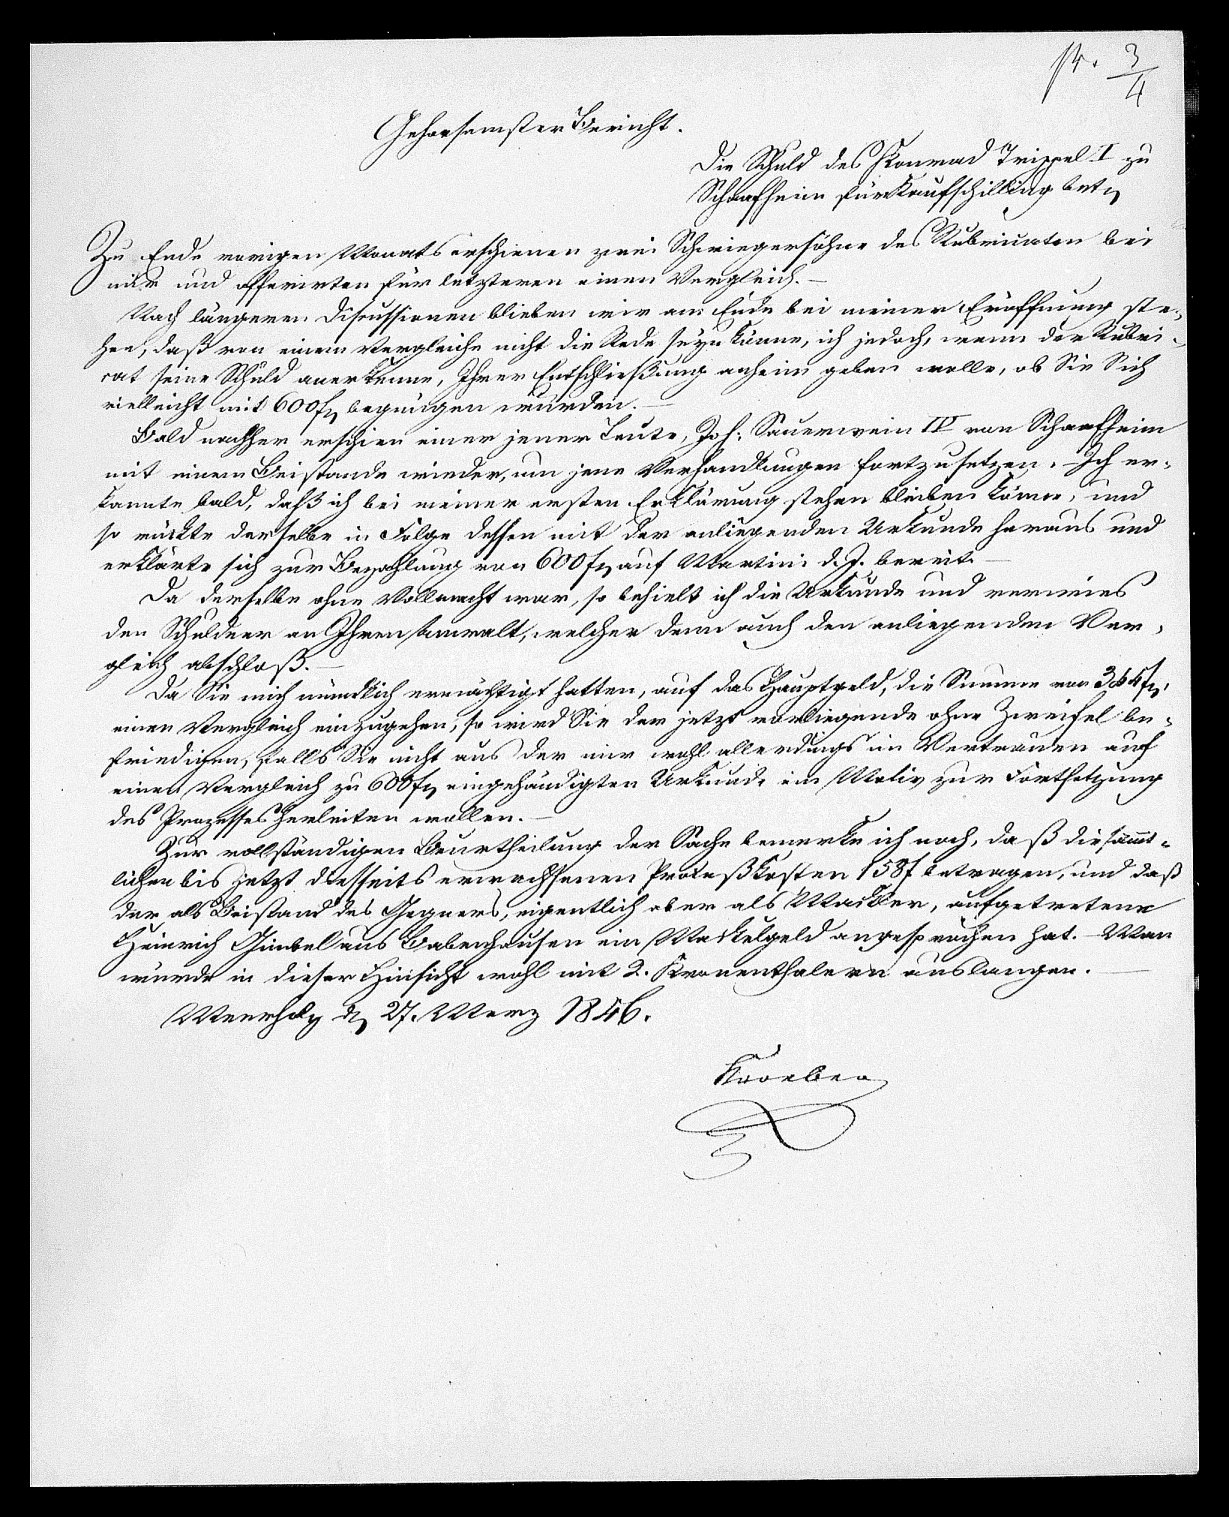 pr. 3/4
Gehorsamster Bericht.
Die Schuld des Konrad Trippel I zu
Schaafheim für Kaufschilling betr.
Zu Ende vorigen Monats erschienen zwei Schwiegersöhne des Rubricaten bei
mir und offerirten für letzteren einen Vergleich. —
Nach längeren Discussionen blieben wir am Ende bei meiner Eröffnung ste-
hen, daß von einem Vergleiche nicht die Rede seyn könne, ich jedoch, wenn der Rubri-
cat seine Schuld anerkenne, Ihrer Entschließung anheim geben wolle, ob Sie Sich
vielleicht mit 600 fl. begnügen würden. —
Bald nachher erschien einer jener Leute, Joh. Sauerwein IV von Schaafheim
mit einem Beistande wieder, um jene Verhandlungen fortzusetzen. Ich er-
kannte bald, daß ich bei meiner ersten Erklärung stehen bleiben könne, und
so rückte derselbe in Folge dessen mit der anliegenden Urkunde heraus und
erklärte sich zur Bezahlung von 600 fl. auf Martini d. J. bereit. —
Da derselbe ohne Vollmacht war, so behielt ich die Urkunde und verwies
den Schuldner an Ihren Anwalt, welcher denn auch den anliegenden Ver-
gleich abschloß. —
Da Sie mich mündlich ermächtigt hatten, auf das Hauptgeld, die Summe von fl.
einen Vergleich einzugehen, so wird Sie der jetzt vorliegende ohne Zweifel be-
friedigen, falls Sie nicht aus der mir wohl allerdings im Vertrauen auf
einen Vergleich zu 600 fl. eingehändigten Urkunde ein Motiv zur Fortsetzung
des Prozesses herleiten wollen. —
Zur vollständigen Beurtheilung der Sache bemerke ich noch, daß die sämmt-
lichen bis jetzt diesseits erwachsenen Prozeßkosten 158 f betragen, und daß
der als Beistand des Gegners, eigentlich aber als Mackler, aufgetretene
Heinrich Gimbel aus Babenhausen ein Mackelgeld angesprochen hat. — Man
würde in dieser Hinsicht wohl mit 2. Kronenthalern auslangen. —
Meerholz d. 27. Merz 1846.
Kroeber